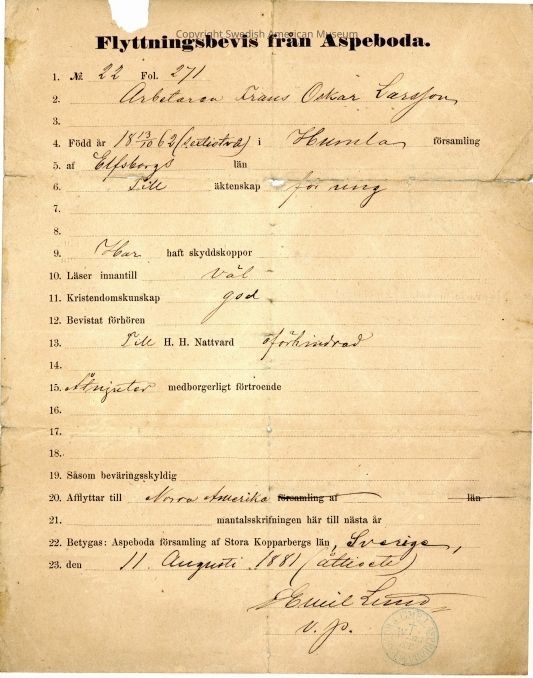 Copyright Swedish American Museum
Flyttningsbevis från Aspeboda.
1. №. 22 Fol. 271
2. Arbetaren Frans Oskar Larsson
3.
4. Född år 18 13/10 62 (sextiotvå) i Humla församling
5. af Elfsborgs län
6. Till äktenskap för ung
7.
8.
9. Har haft skyddskoppor
10. Läser innantill väl
11. Kristendomskunskap god
12. Bevistat förhören
13. Till H. H. Nattvard oförhindrad
14.
15. Åtnjuter medborgerligt förtroende
16.
17.
18.
19. Såsom beväringsskyldig
20. Afflyttar till Norra Amerika församling af län
21. mantalsskrifningen här till nästa år
22. Betygas: Aspeboda församling af Stora Kopparbergs län, Sverige,
23. den 11 Augusti 1881 (åttioett)
Emil Lund
v. p.